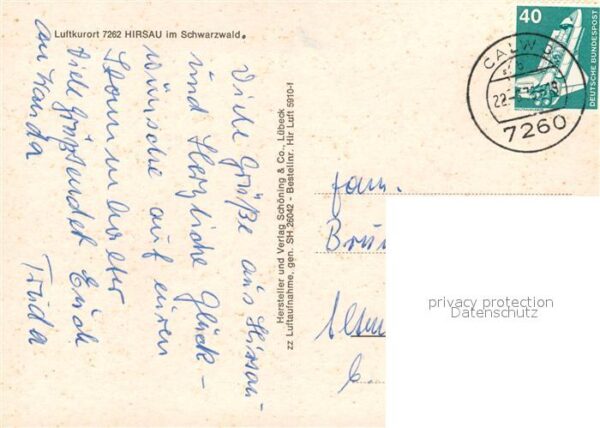 Luftkurort 7262 HIRSAU im Schwarzwald.
Viele Grüße aus Hirsau -
und Herzliche Glück -
wünsche auf euren
Stammhalter
Viele Grüße sendet Euch
Trüda
an Wanda
Hersteller und Verlag Schöning & Co., Lübeck
zz Luftaufnahme, gen. SH 26042 - Bestellnr. Hir Luft 5910-f
40
DEUTSCHE BUNDESPOST
CALW
22.
7260
Fam.
Brun
privacy protection
Datenschutz